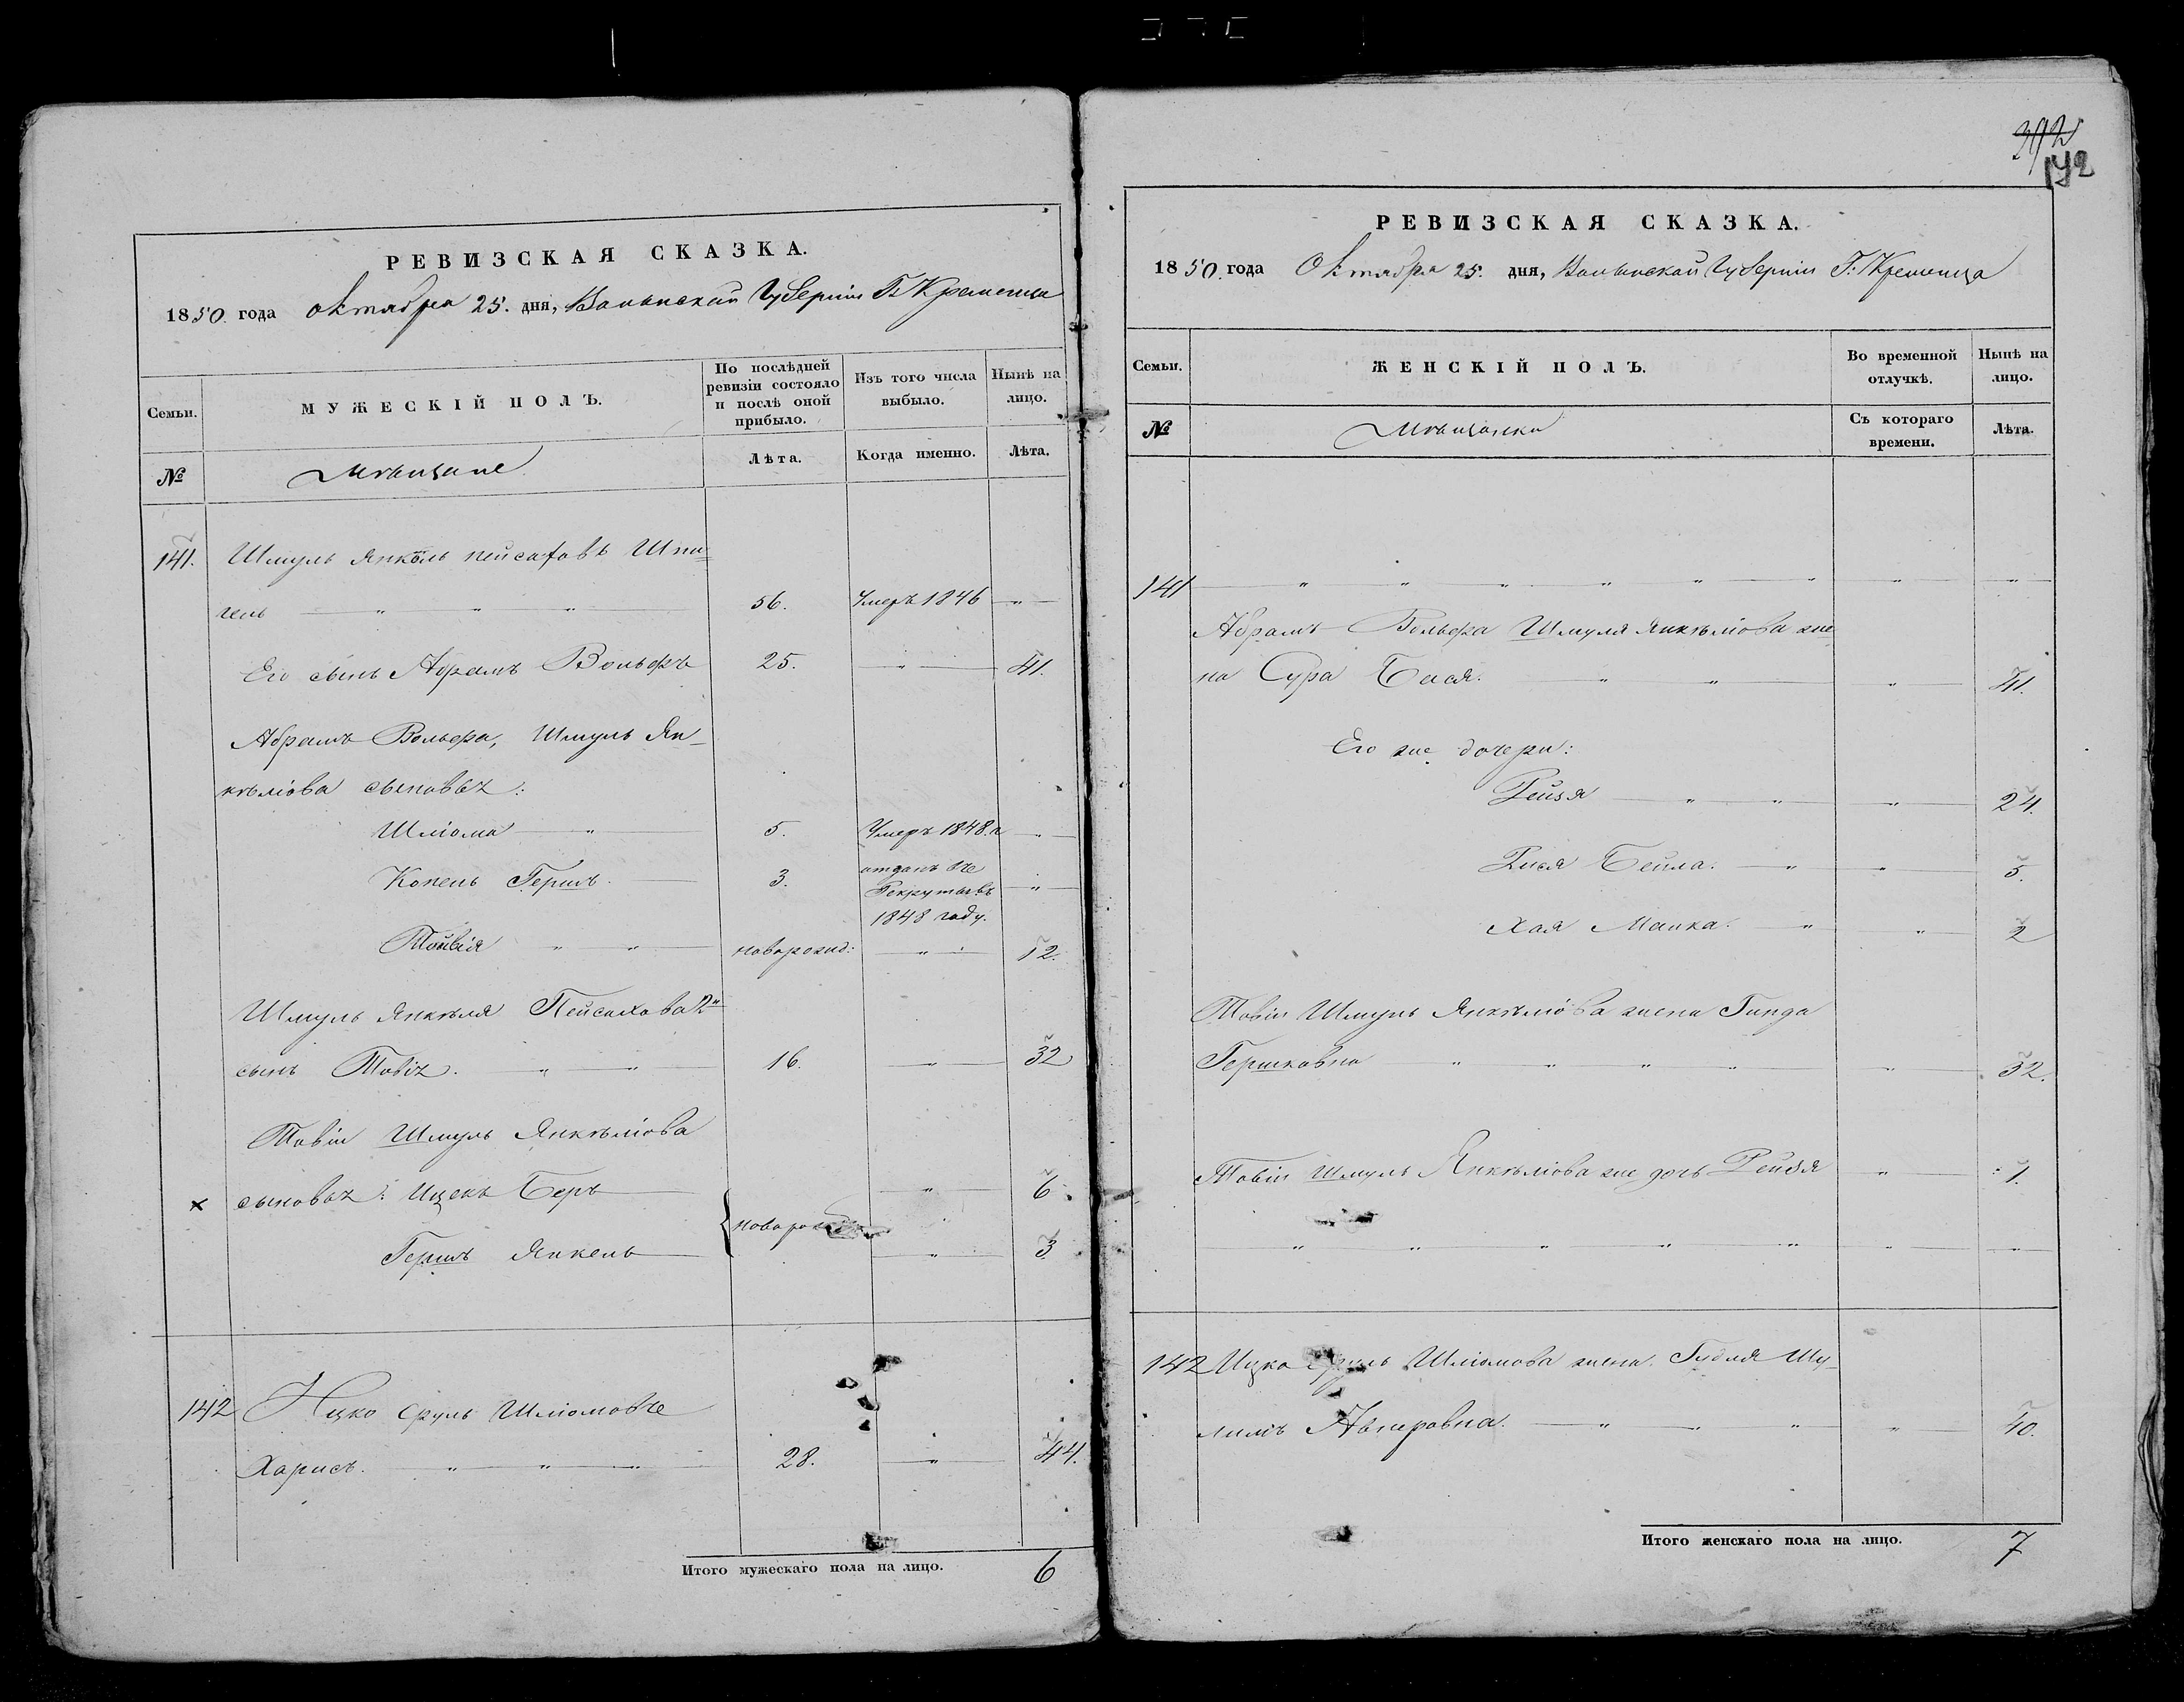 РЕВИЗСКАЯ СКАЗКА.
1850 года октября 25. дня, Волынской Губернии Г. Кременца
Семьи.
МУЖЕСКІЙ ПОЛЪ.
По послѣдней ревизіи состояло и послѣ оной прибыло.
Изъ того числа выбыло.
Нынѣ на лицо.
№
Мѣщане
Лѣта.
Когда именно.
Лѣта.
141. Шмуль Янкель Пейсаховъ Шпи=
гель 56. Умеръ 1846
Его сынъ Абрамъ Вольфъ 25. 41.
Абрамъ Вольфа, Шмуль Ян-
келіова сыновья:
Шліома 5. Умеръ 1848. г
Копель Гершъ. 3. отданъ въ
Рекруты въ
1848 году.
Тойвія новорожд: 12.
Шмуль Янкеля Пейсахова 2й
сынъ Товія. 16. 32
Товіи Шмуль Янкеліова
× сыновья: Ицекъ Беръ 6.
новорожд
Гершъ Янкель 3
142 Ицко Сруль Шліомовъ
Харисъ. 28. 44.
Итого мужескаго пола на лицо. 6
392
192
РЕВИЗСКАЯ СКАЗКА.
1850 года Октября 25. дня, Волынской Губернии Г. Кременца
Семьи.
ЖЕНСКІЙ ПОЛЪ.
Во временной отлучкѣ.
Нынѣ на лицо.
№
Мѣщанки
Съ котораго времени.
Лѣта.
141
Абрамъ Вольфа Шмуля Янкеліова же
на Сура Бася. 41.
Его же дочери:
Рейзя 24.
Рися Бейла. 5.
Хая Малка. 2
Товіи Шмуль Янкеліова жена Гинда
Гершковна 32.
Товіи Шмуль Янкеліова же дочь Рейзя 1.
142 Ицко Сруль Шліомова жена Гудля Шу-
лимъ Авнеровна. 40.
Итого женскаго пола на лицо. 7